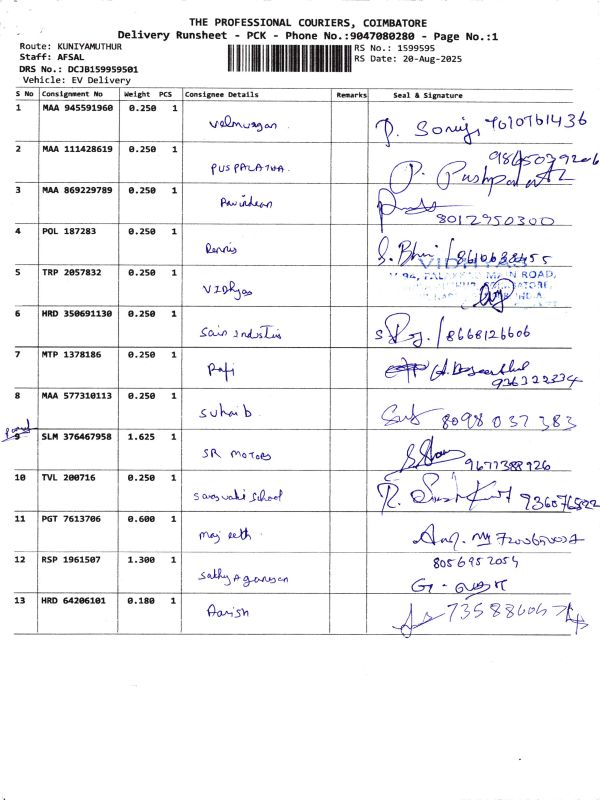 THE PROFESSIONAL COURIERS, COIMBATORE
Delivery Runsheet - PCK - Phone No.:9047080280 - Page No.:1
Route: KUNIYAMUTHUR
RS No.: 1599595
Staff: AFSAL
RS Date: 20-Aug-2025
DRS No.: DCJB159959501
Vehicle: EV Delivery
S No Consignment No Weight PCS Consignee Details Remarks Seal & Signature
1 MAA 945591960 0.250 1 Velmurgan
2 MAA 111428619 0.250 1 PUSPALATHA P. Pushpalatha
3 MAA 869229789 0.250 1 Ravindran 8012950300
4 POL 187283 0.250 1 Dennis
5 TRP 2057832 0.250 1 Vidhyas MAIN ROAD,
6 HRD 350691130 0.250 1 Sain Industris 8668126606
7 MTP 1378186 0.250 1 Rafi
8 MAA 577310113 0.250 1 Suhaib 8098 037 383
9 SLM 376467958 1.625 1 SR MOTORS 9677388926
10 TVL 200716 0.250 1 Saraswathi School
11 PGT 7613706 0.600 1
12 RSP 1961507 1.300 1 8056952054
13 HRD 64206101 0.180 1 Harish